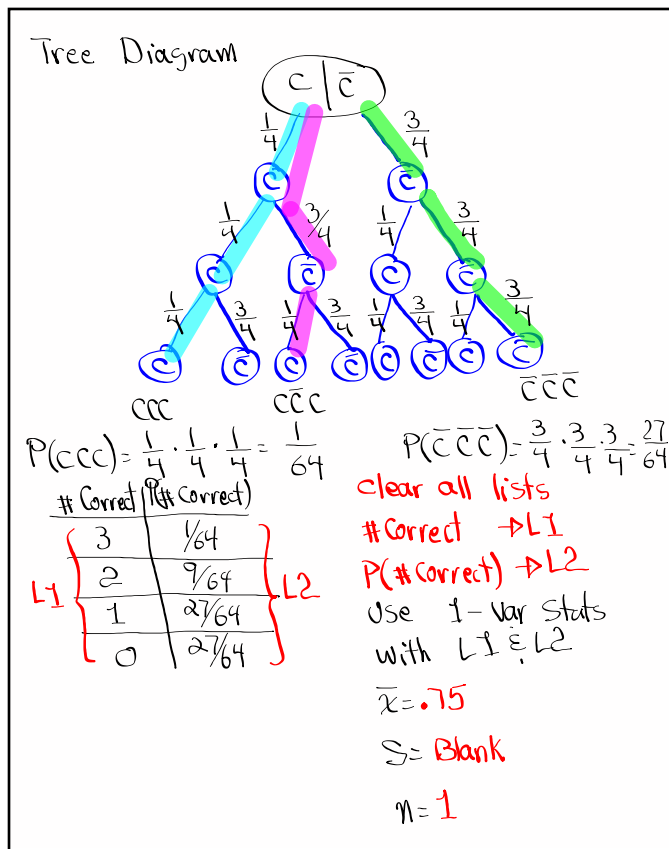 Tree Diagram
C | C̅
1/4 3/4
C C̅
1/4 3/4 1/4 3/4
C C̅ C C̅
1/4 3/4 1/4 3/4 1/4 3/4 1/4 3/4
C C̅ C C̅ C C̅ C C̅
CCC CC̅C C̅C̅C̅
P(CCC) = 1/4 · 1/4 · 1/4 = 1/64
P(C̅C̅C̅) = 3/4 · 3/4 · 3/4 = 27/64
# Correct | P(# Correct)
3 1/64
2 9/64
1 27/64
0 27/64
L1 L2
Clear all lists
# Correct → L1
P(# Correct) → L2
Use 1-Var Stats
with L1 & L2
x̅ = .75
S = Blank
n = 1